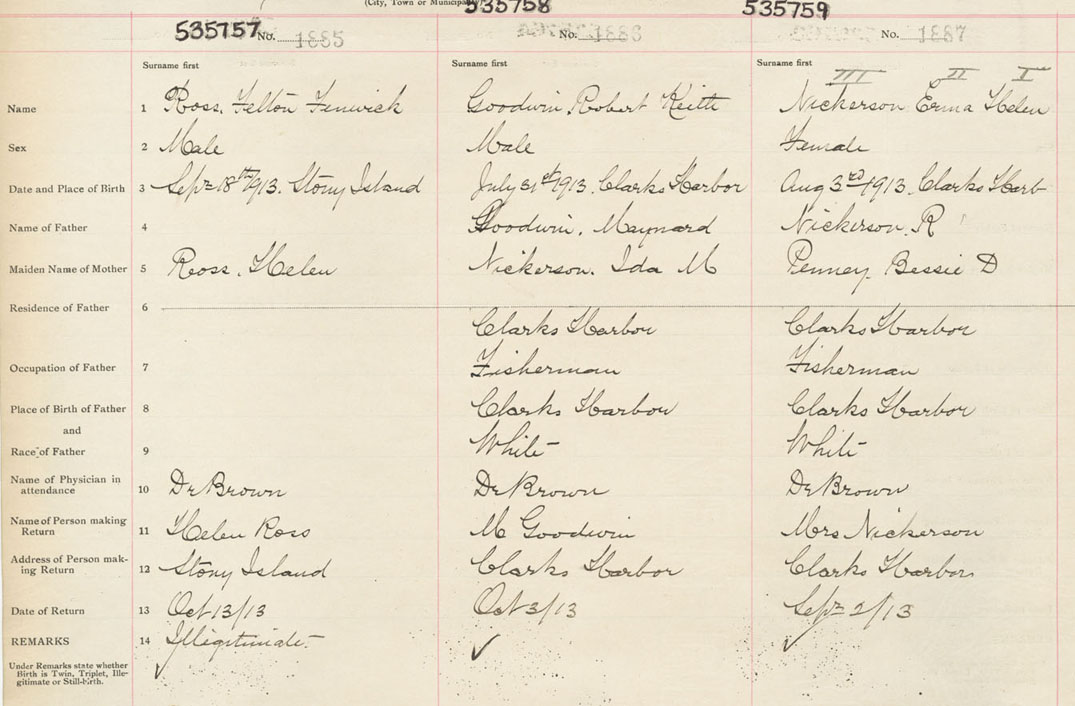 (City, Town or Municipality)
535757 No. 1885
535758 No. 1886
535759 No. 1887
Surname first Surname first Surname first
III II I
Name 1 Ross, Felton Fenwick Goodwin, Robert Keith Nickerson Erma Helen
Sex 2 Male Male Female
Date and Place of Birth 3 Sept 18th 1913. Stony Island July 31st 1913. Clarks Harbor Aug 3rd 1913. Clarks Harb
Name of Father 4 Goodwin, Maynard Nickerson, R
Maiden Name of Mother 5 Ross, Helen Nickerson, Ida M Penney, Bessie D
Residence of Father 6 Clarks Harbor Clarks Harbor
Occupation of Father 7 Fisherman Fisherman
Place of Birth of Father 8 Clarks Harbor Clarks Harbor
and
Race of Father 9 White White
Name of Physician in
attendance 10 Dr Brown Dr Brown Dr Brown
Name of Person making
Return 11 Helen Ross M Goodwin Mrs Nickerson
Address of Person mak-
ing Return 12 Stony Island Clarks Harbor Clarks Harbor
Date of Return 13 Oct 13/13 Oct 3/13 Sept 2/13
REMARKS 14 Illegitimate.
Under Remarks state whether
Birth is Twin, Triplet, Ille-
gitimate or Still-birth.